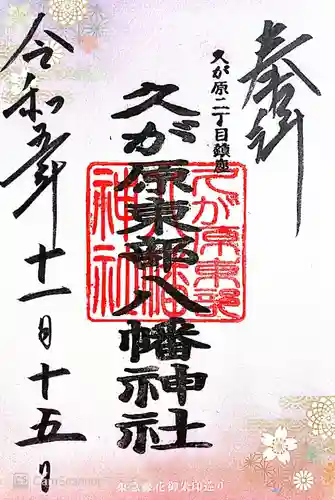 奉拝
久が原二丁目鎮座
久が原東部八幡神社
久が原東部八幡神社
令和五年
十一月十五日
東急線花御朱印巡り
CamScanner